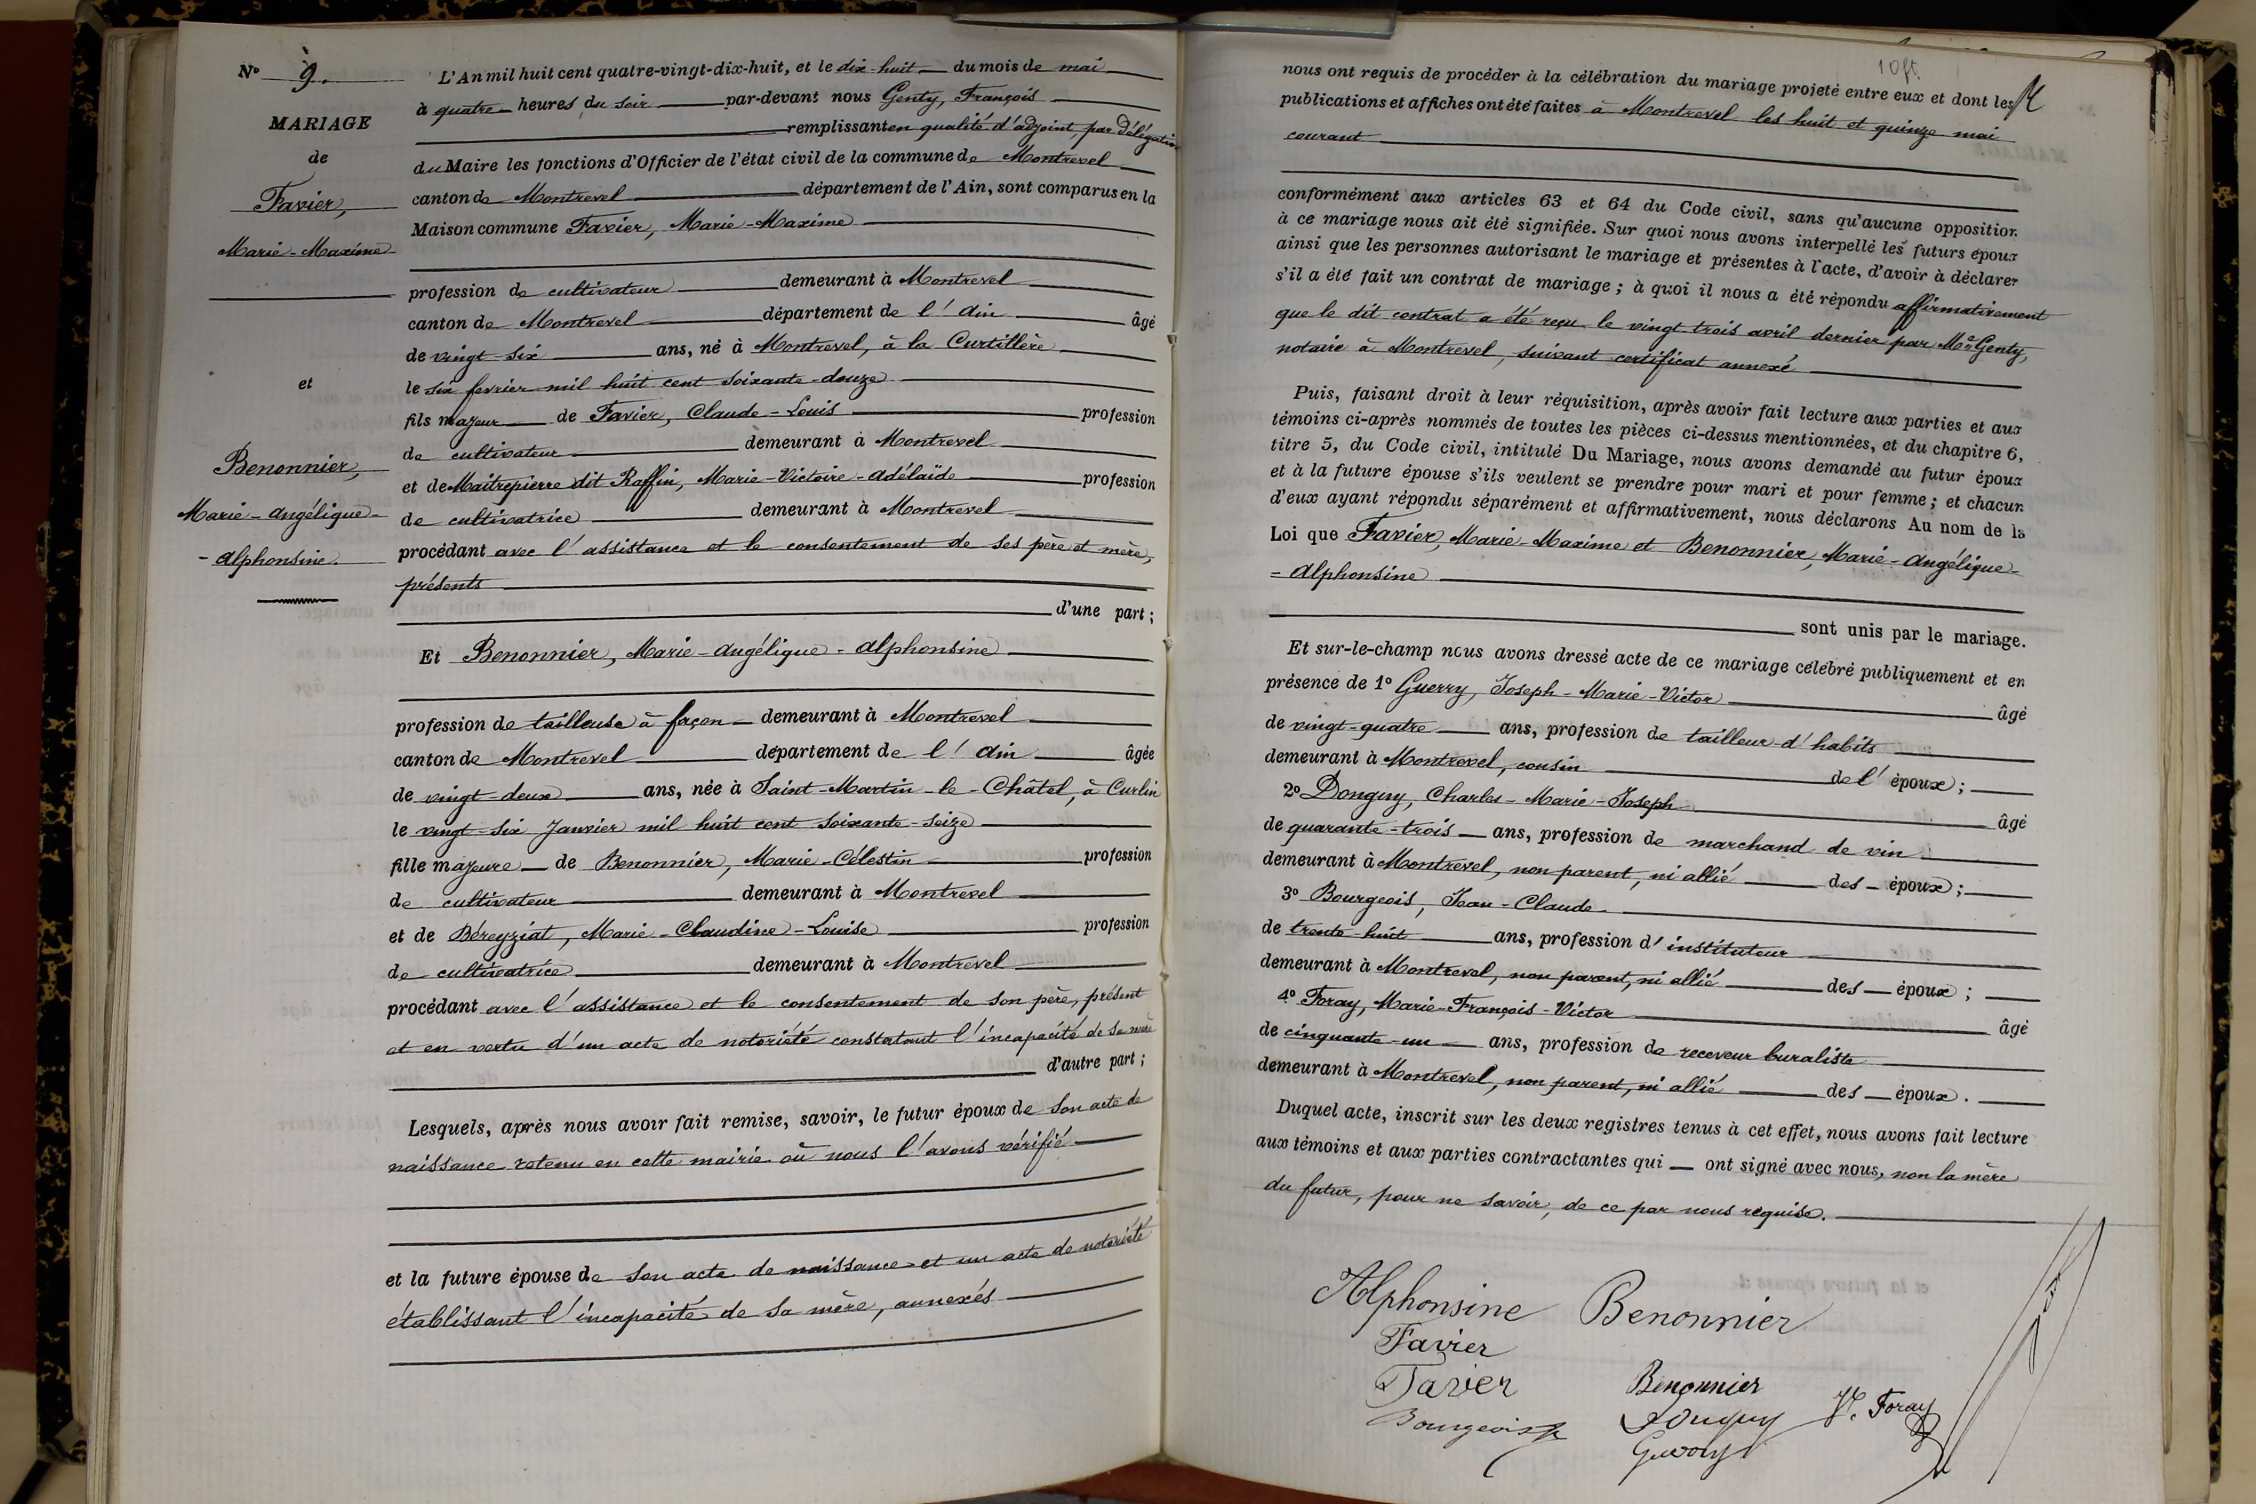 N° 9.
MARIAGE
de
Favier,
Marie-Maxime
et
Benonnier,
Marie-Angélique-
-Alphonsine.
L'An mil huit cent quatre-vingt-dix-huit, et le dix-huit du mois de mai
à quatre heures du soir par-devant nous Genty, François
remplissant en qualité d'adjoint, par délégation
du Maire les fonctions d'Officier de l'état civil de la commune de Montrevel
canton de Montrevel département de l'Ain, sont comparus en la
Maison commune Favier, Marie-Maxime
profession de cultivateur demeurant à Montrevel
canton de Montrevel département de l'Ain âgé
de vingt-six ans, né à Montrevel, à la Curtillère
le six fevrier mil huit cent soixante-douze
fils majeur de Favier, Claude-Louis profession
de cultivateur demeurant à Montrevel
et de Maitrepierre dit Raffin, Marie-Victoire-Adélaïde profession
de cultivatrice demeurant à Montrevel
procédant avec l'assistance et le consentement de ses père et mère,
présents
d'une part ;
Et Benonnier, Marie-Angélique-Alphonsine
profession de tailleuse à façon demeurant à Montrevel
canton de Montrevel département de l'Ain âgée
de vingt-deux ans, née à Saint-Martin-le-Châtel, à Curlin
le vingt-six Janvier mil huit cent soixante-seize
fille majeure de Benonnier, Marie-Célestin profession
de cultivateur demeurant à Montrevel
et de Béreyziat, Marie-Claudine-Louise profession
de cultivatrice demeurant à Montrevel
procédant avec l'assistance et le consentement de son père, présent
et en vertu d'un acte de notoriété constatant l'incapacité de sa mère
d'autre part ;
Lesquels, après nous avoir fait remise, savoir, le futur époux de son acte de
naissance retenu en cette mairie où nous l'avons vérifié
et la future épouse de son acte de naissance et un acte de notoriété
établissant l'incapacité de sa mère, annexés
10 ft.
nous ont requis de procéder à la célébration du mariage projeté entre eux et dont les
publications et affiches ont été faites à Montrevel les huit et quinze mai
courant
conformément aux articles 63 et 64 du Code civil, sans qu'aucune opposition
à ce mariage nous ait été signifiée. Sur quoi nous avons interpellé les futurs époux
ainsi que les personnes autorisant le mariage et présentes à l'acte, d'avoir à déclarer
s'il a été fait un contrat de mariage ; à quoi il nous a été répondu affirmativement
que le dit contrat a été reçu le vingt-trois avril dernier par Me Genty,
notaire à Montrevel, suivant certificat annexé
Puis, faisant droit à leur réquisition, après avoir fait lecture aux parties et aux
témoins ci-après nommés de toutes les pièces ci-dessus mentionnées, et du chapitre 6,
titre 5, du Code civil, intitulé Du Mariage, nous avons demandé au futur époux
et à la future épouse s'ils veulent se prendre pour mari et pour femme ; et chacun
d'eux ayant répondu séparément et affirmativement, nous déclarons Au nom de la
Loi que Favier, Marie-Maxime et Benonnier, Marie-Angélique-
-Alphonsine
sont unis par le mariage.
Et sur-le-champ nous avons dressé acte de ce mariage célébré publiquement et en
présence de 1° Guerry, Joseph-Marie-Victor âgé
de vingt-quatre ans, profession de tailleur d'habits
demeurant à Montrevel, cousin de l'époux ;
2° Donguy, Charles-Marie-Joseph âgé
de quarante-trois ans, profession de marchand de vin
demeurant à Montrevel, non parent, ni allié des époux ;
3° Bourgeois, Jean-Claude
de trente-huit ans, profession d'instituteur
demeurant à Montrevel, non parent, ni allié des époux ;
4° Foray, Marie-François-Victor âgé
de cinquante-un ans, profession de receveur buraliste
demeurant à Montrevel, non parent, ni allié des époux.
Duquel acte, inscrit sur les deux registres tenus à cet effet, nous avons fait lecture
aux témoins et aux parties contractantes qui ont signé avec nous, non la mère
du futur, pour ne savoir, de ce par nous requise.
Alphonsine Benonnier
Favier
Favier Benonnier
Bourgeois Donguy V. Foray